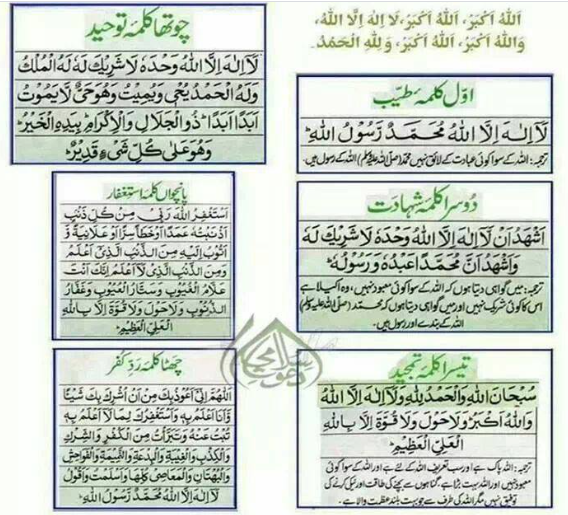 اَللهُ اَكْبَرُ، اَللهُ اَكْبَرُ، لَا اِلٰهَ اِلَّا اللهُ،
وَاللهُ اَكْبَرُ، اَللهُ اَكْبَرُ، وَلِلّٰهِ الْحَمْدُ.
اوّل کلمۂ طیّب
لَاۤ اِلٰهَ اِلَّا اللهُ مُحَمَّدٌ رَّسُوْلُ اللهِ
ترجمہ: اللہ کے سوا کوئی عبادت کے لائق نہیں محمد (صلی اللہ علیہ وسلم) اللہ کے رسول ہیں۔
دُوسرا کلمۂ شہادت
اَشْهَدُ اَنْ لَّاۤ اِلٰهَ اِلَّا اللهُ وَحْدَهٗ لَا شَرِيْكَ لَهٗ
وَاَشْهَدُ اَنَّ مُحَمَّدًا عَبْدُهٗ وَرَسُوْلُهٗ
ترجمہ: میں گواہی دیتا ہوں کہ اللہ کے سوا کوئی معبود نہیں، وہ اکیلا ہے
اس کا کوئی شریک نہیں اور میں گواہی دیتا ہوں کہ محمد (صلی اللہ علیہ وسلم)
اللہ کے بندے اور رسول ہیں۔
تیسرا کلمۂ تمجید
سُبْحَانَ اللهِ وَالْحَمْدُ لِلّٰهِ وَلَاۤ اِلٰهَ اِلَّا اللهُ
وَاللهُ اَكْبَرُ وَلَا حَوْلَ وَلَا قُوَّةَ اِلَّا بِاللهِ
الْعَلِيِّ الْعَظِيْمِ
ترجمہ: اللہ پاک ہے اور سب تعریف اللہ کے لئے ہے اور اللہ کے سوا کوئی
معبود نہیں اور اللہ بہت بڑا ہے۔ گناہوں سے بچنے کی طاقت اور نیکی کرنے کی
توفیق نہیں مگر اللہ کی طرف سے جو بہت بلند عظمت والا ہے۔
چوتھا کلمۂ توحید
لَاۤ اِلٰهَ اِلَّا اللهُ وَحْدَهٗ لَا شَرِيْكَ لَهٗ لَهُ الْمُلْكُ
وَلَهُ الْحَمْدُ يُحْيٖ وَيُمِيْتُ وَهُوَ حَيٌّ لَّا يَمُوْتُ
اَبَدًا اَبَدًا ذُو الْجَلَالِ وَالْاِكْرَامِ بِيَدِهِ الْخَيْرُ
وَهُوَ عَلٰى كُلِّ شَيْءٍ قَدِيْرٌ
پانچواں کلمۂ استغفار
اَسْتَغْفِرُ اللهَ رَبِّيْ مِنْ كُلِّ ذَنْبٍ
اَذْنَبْتُهٗ عَمَدًا اَوْ خَطَأً سِرًّا اَوْ عَلَانِيَةً وَّ
اَتُوْبُ اِلَيْهِ مِنَ الذَّنْبِ الَّذِيْۤ اَعْلَمُ
وَمِنَ الذَّنْبِ الَّذِيْ لَاۤ اَعْلَمُ اِنَّكَ اَنْتَ
عَلَّامُ الْغُيُوْبِ وَسَتَّارُ الْعُيُوْبِ وَغَفَّارُ
الذُّنُوْبِ وَلَا حَوْلَ وَلَا قُوَّةَ اِلَّا بِاللهِ
الْعَلِيِّ الْعَظِيْمِ
چھٹا کلمۂ ردِّ کفر
اَللّٰهُمَّ اِنِّيْۤ اَعُوْذُ بِكَ مِنْ اَنْ اُشْرِكَ بِكَ شَيْئًا
وَّاَنَا اَعْلَمُ بِهٖ وَاَسْتَغْفِرُكَ لِمَا لَاۤ اَعْلَمُ بِهٖ
تُبْتُ عَنْهُ وَتَبَرَّأْتُ مِنَ الْكُفْرِ وَالشِّرْكِ
وَالْكِذْبِ وَالْغِيْبَةِ وَالْبِدْعَةِ وَالنَّمِيْمَةِ وَالْفَوَاحِشِ
وَالْبُهْتَانِ وَالْمَعَاصِيْ كُلِّهَا وَاَسْلَمْتُ وَاَقُوْلُ
لَاۤ اِلٰهَ اِلَّا اللهُ مُحَمَّدٌ رَّسُوْلُ اللهِ